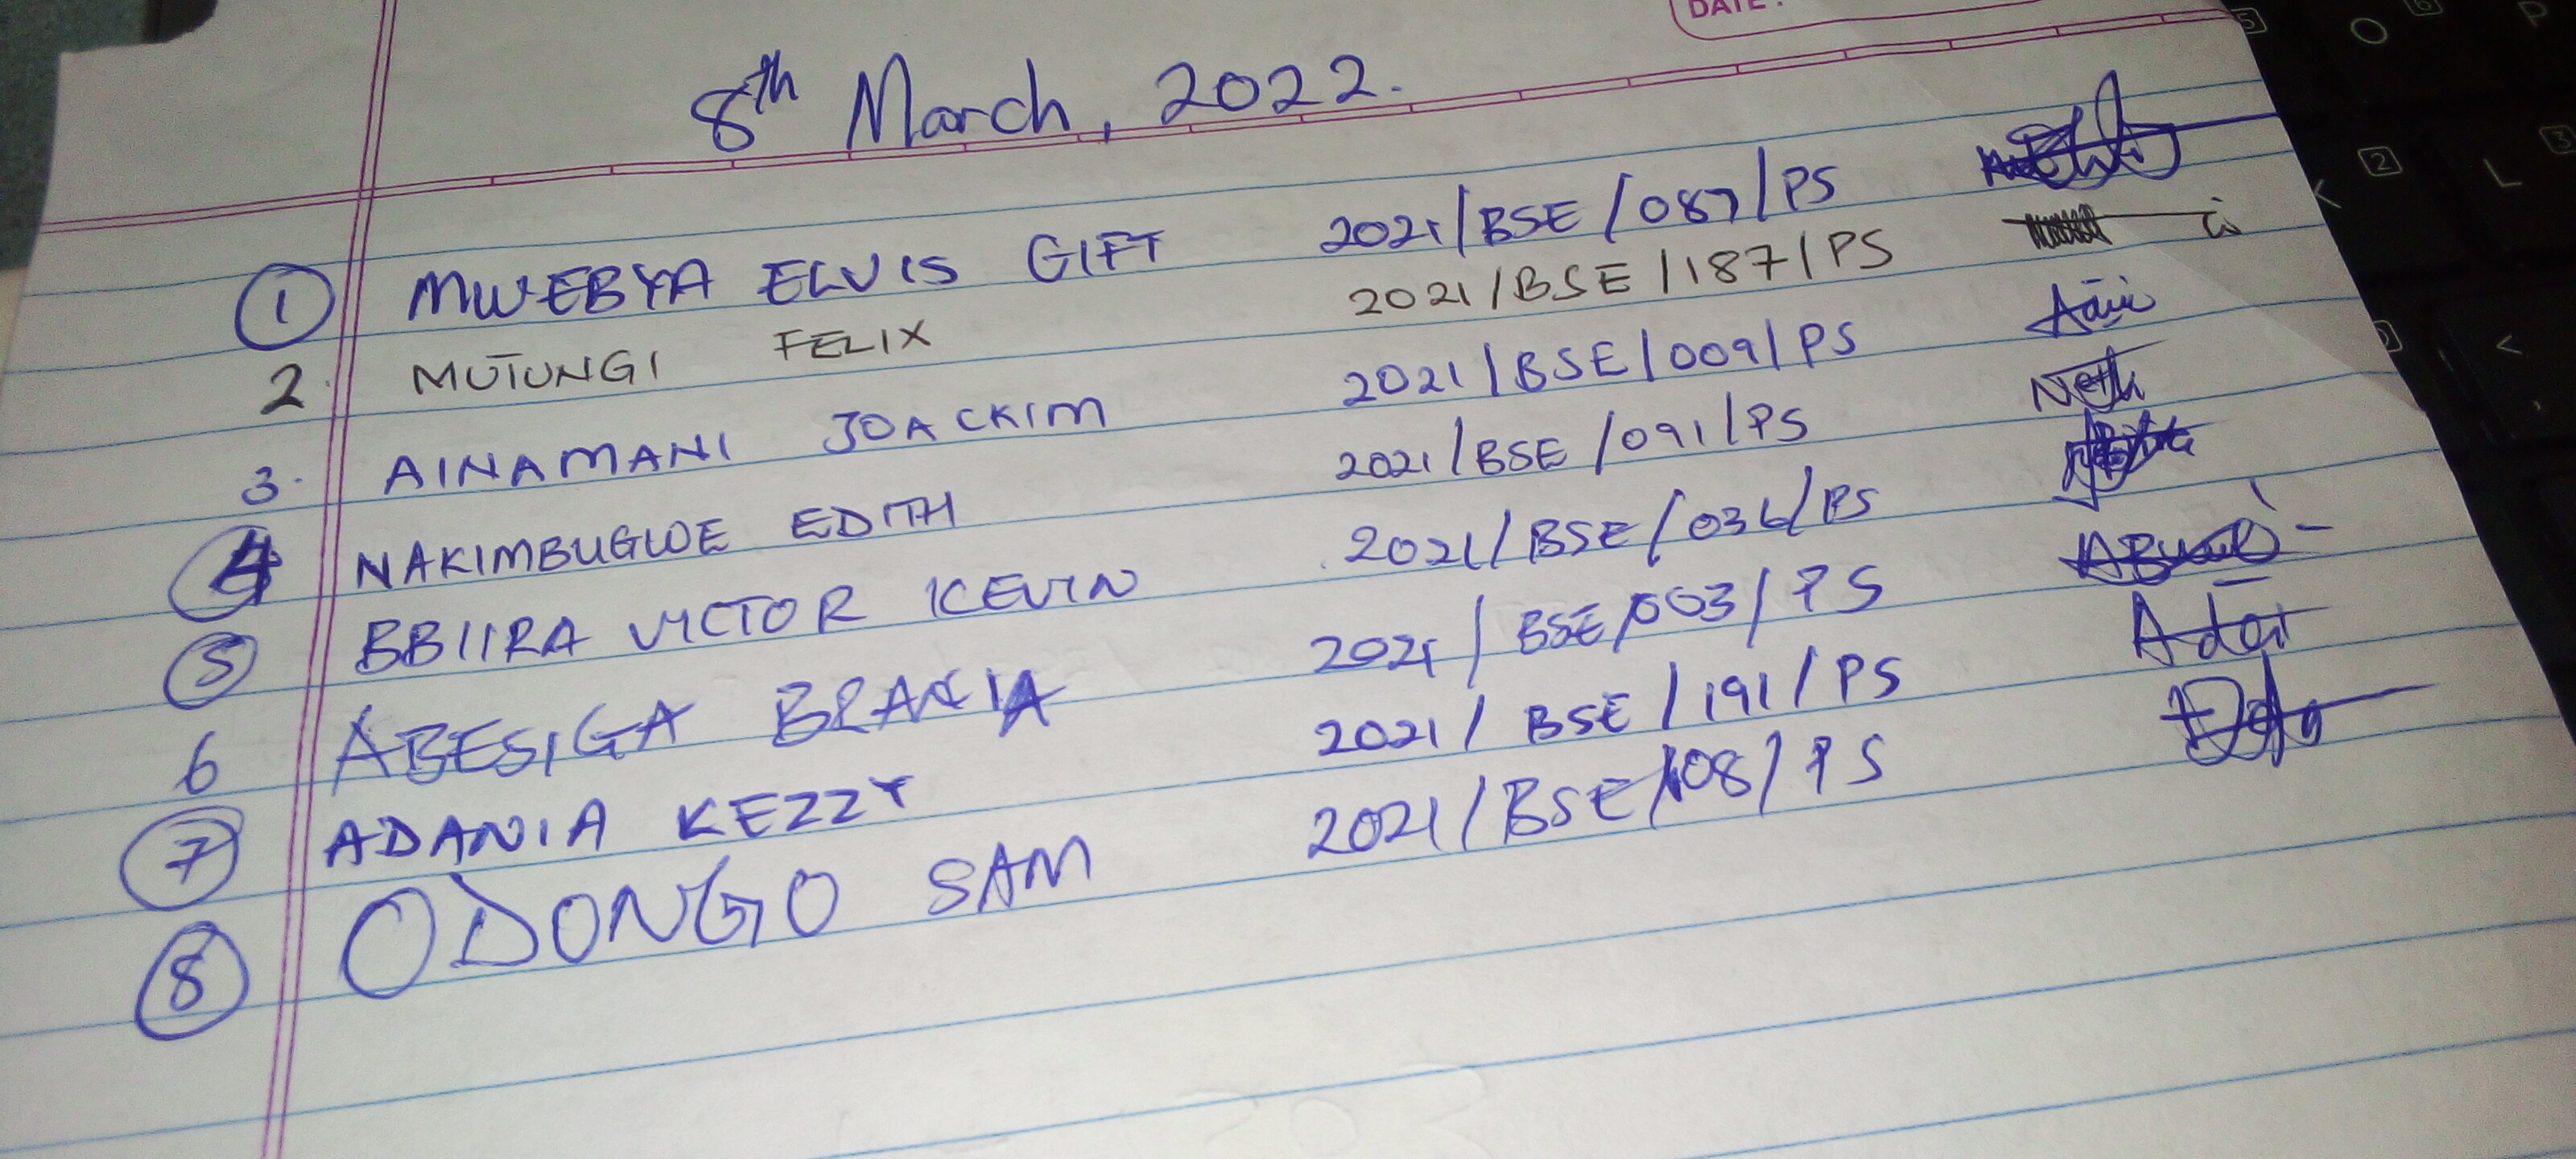 DATE:
8th March, 2022.
1 MWEBYA ELVIS GIFT 2021/BSE/087/PS
2. MUTUNGI FELIX 2021/BSE/187/PS
3. AINAMANI JOACKIM 2021/BSE/009/PS
4 NAKIMBUGWE EDITH 2021/BSE/091/PS
5 BBIIRA VICTOR KEVIN 2021/BSE/036/PS
6 ABESIGA 2021/BSE/003/PS
7 ADANIA KEZZY 2021/BSE/191/PS
8 ODONGO SAM 2021/BSE/108/PS